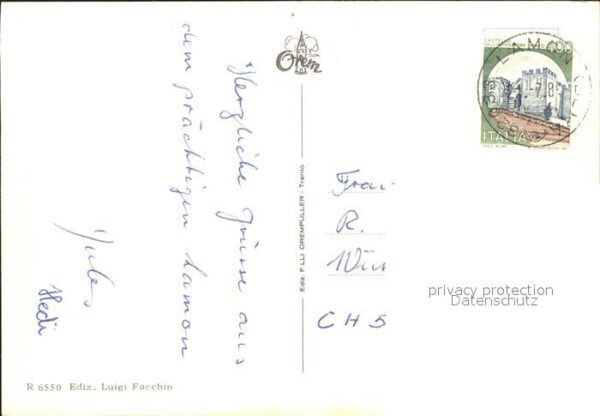 Herzliche Grüsse aus
dem prächtigen Lamon
Jules
Hedi
Orem
Ediz. F.LLI OREMPULLER - Trento
400
ITALIA
LAMON
Frau
R.
CH 5
privacy protection
Datenschutz
R 6550 Ediz. Luigi Facchin